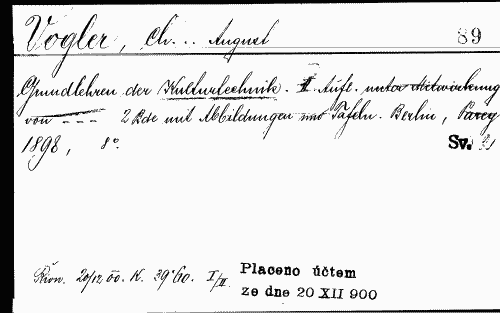 Vogler, Ch... August 89
Grundlehren der Kulturtechnik. II Aufl. unter Mitwirkung
von - - - 2 Bde mit Abbildungen und Tafeln. Berlin, Parey
1898, 8°. Sv.
20/12 00. K. 39·60. I/II. Placeno účtem
ze dne 20 XII 900